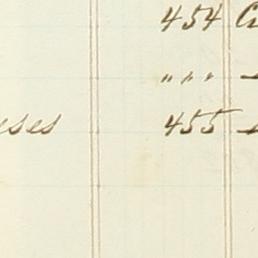 454
" " "
eses 455